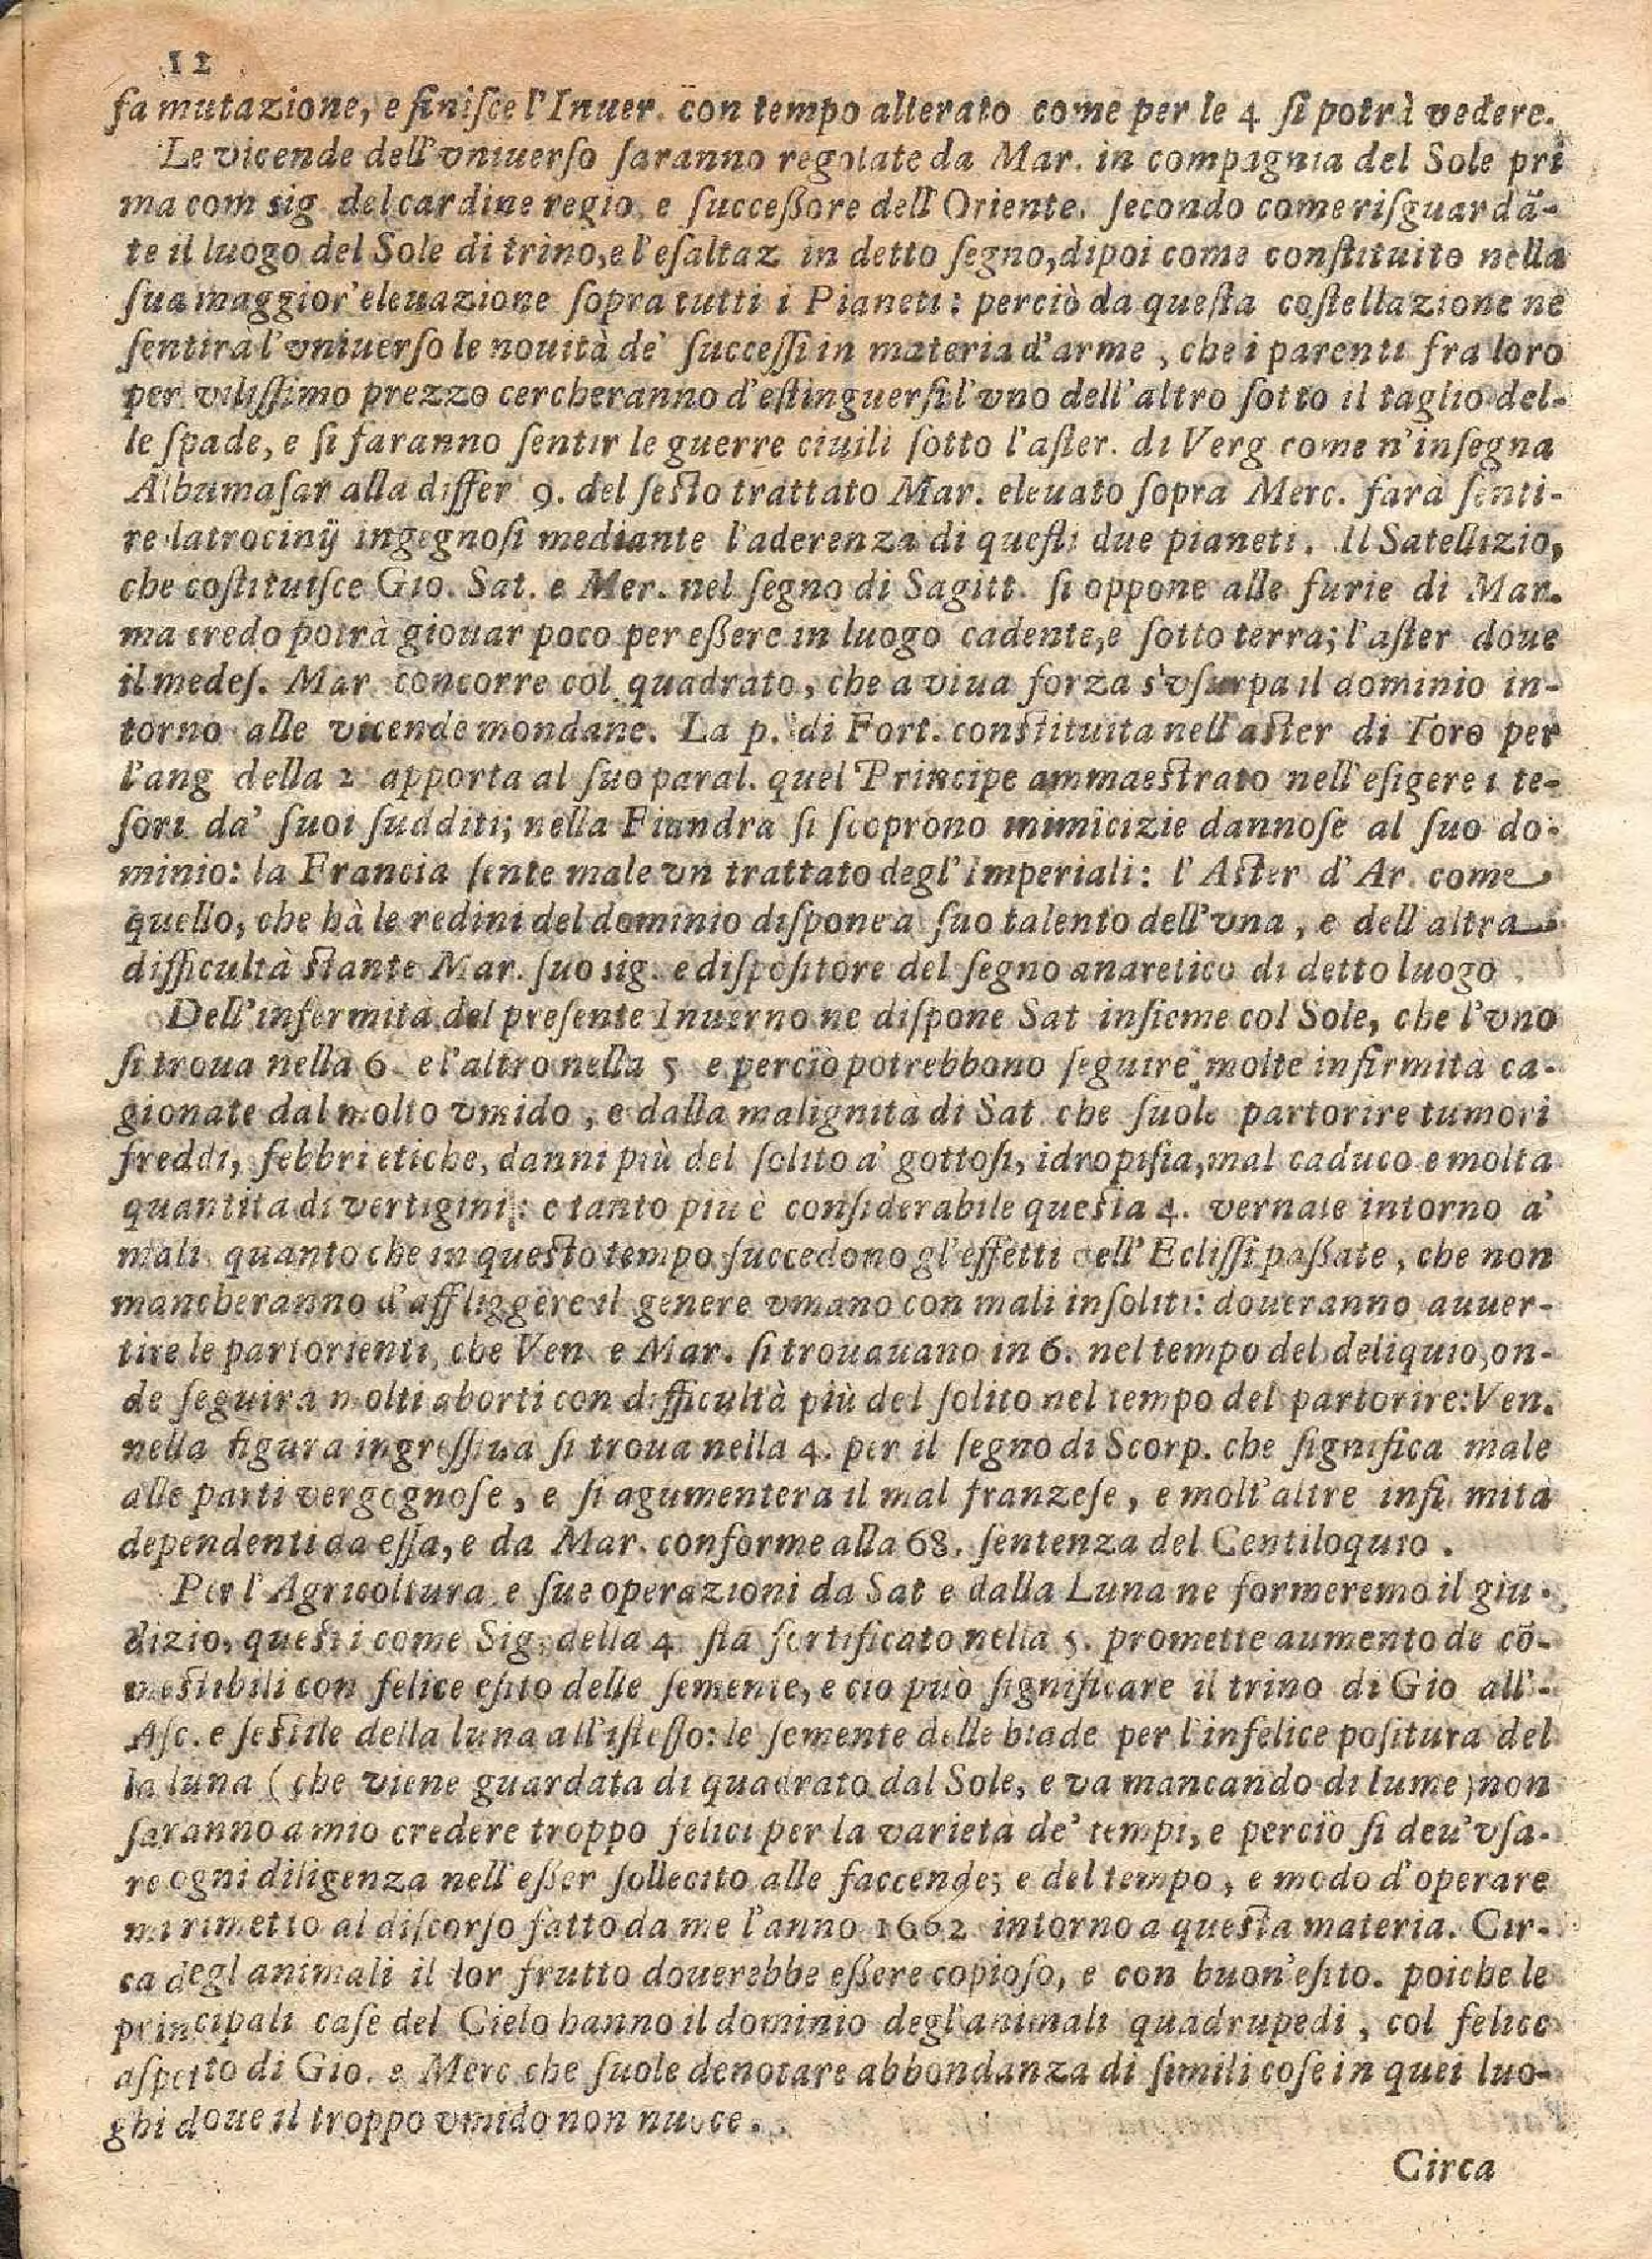 12
fa mutazione, e finiſce l'Inuer. con tempo alterato come per le 4 ſi potrà vedere.
Le vicende dell'vniuerſo ſaranno regolate da Mar. in compagnia del Sole pri
ma com sig. del cardine regio, e ſucceßore dell'Oriente. ſecondo come riſguardã-
te il luogo del Sole di trino, e l'eſaltaz in detto ſegno, dipoi come conſtituito nella
ſua maggior'eleuazione ſopra tutti i Pianeti: perciò da queſta coſtellazione ne
ſentirà l'vniuerſo le nouità de' ſucceſſi in materia d'arme, che i parenti fra loro
per viliſſimo prezzo cercheranno d'eſtinguerſi l'vno dell'altro ſotto il taglio del-
le ſpade, e ſi faranno ſentir le guerre ciuili ſotto l'aſter. di Verg come n'inſegna
Albumaſar alla differ 9. del ſeſto trattato Mar. eleuato ſopra Merc. farà ſenti-
re latrocinÿ ingegnoſi mediante l'aderenza di queſti due pianeti. Il Satellizio,
che coſtituiſce Gio. Sat. e Mer. nel ſegno di Sagitt. ſi oppone alle furie di Mar.
ma credo potrà giouar poco per eßere in luogo cadente, e ſotto terra; l'aſter doue
il medeſ. Mar. concorre col quadrato, che a viua forza s'vſurpa il dominio in-
torno alle vicende mondane. La p. di Fort. conſtituita nell'aſter di Toro per
l'ang della 2 apporta al ſuo paral. quel Principe ammaeſtrato nell'eſigere i te-
ſori da' ſuoi ſudditi; nella Fiandra ſi ſcoprono inimicizie dannoſe al ſuo do-
minio: la Francia ſente male vn trattato degl'Imperiali: l'Aſter d'Ar. come
quello, che hà le redini del dominio diſpone a ſuo talento dell'vna, e dell'altra
difficultà ſtante Mar. ſuo sig. e diſpoſitore del ſegno anaretico di detto luogo.
Dell'infermità del preſente Inuerno ne diſpone Sat inſieme col Sole, che l'vno
ſi troua nella 6 e l'altro nella 5 e perciò potrebbono ſeguire molte infirmità ca-
gionate dal molto vmido, e dalla malignità di Sat. che ſuole partorire tumori
freddi, febbri etiche, danni più del ſolito a' gottoſi, idropiſia, mal caduco e molta
quantità di vertigini: e tanto più è conſiderabile queſta 4. vernale intorno a'
mali quanto che in queſto tempo ſuccedono gl'effetti dell'Ecliſſi paßate, che non
mancheranno d'affliggere il genere vmano con mali inſoliti: doueranno auuer-
tire le partorienti, che Ven. e Mar. ſi trouauano in 6. nel tempo del deliquio, on-
de ſeguirà molti aborti con difficultà più del ſolito nel tempo del partorire: Ven.
nella figura ingreſſiua ſi troua nella 4. per il ſegno di Scorp. che ſignifica male
alle parti vergognoſe, e ſi agumenterà il mal franzeſe, e molt'altre infi mità
dependenti da eſſa, e da Mar. conforme alla 68. ſentenza del Centiloquio.
Per l'Agricoltura e ſue operazioni da Sat e dalla Luna ne formeremo il giu-
dizio, queſti come Sig. della 4 ſta fortificato nella 5. promette aumento de cõ-
meſtibili con felice eſito delle ſemente, e ciò può ſignificare il trino di Gio all'-
Aſc. e ſeſtile della luna all'iſteſſo: le ſemente delle biade per l'infelice poſitura del
la luna (che viene guardata di quadrato dal Sole, e va mancando di lume) non
ſaranno a mio credere troppo felici per la varietà de' tempi, e perciò ſi deu'vſa-
re ogni diligenza nell'eßer ſollecito alle faccende; e del tempo, e modo d'operare
mi rimetto al diſcorſo fatto da me l'anno 1662 intorno a queſta materia. Cir-
ca degl animali il lor frutto douerebbe eßere copioſo, e con buon'eſito. poiche le
principali caſe del Cielo hanno il dominio degl'animali quadrupedi, col felice
aſpetto di Gio. e Merc che ſuole denotare abbondanza di ſimili coſe in quei luo-
ghi doue il troppo vmido non nuoce.
Circa